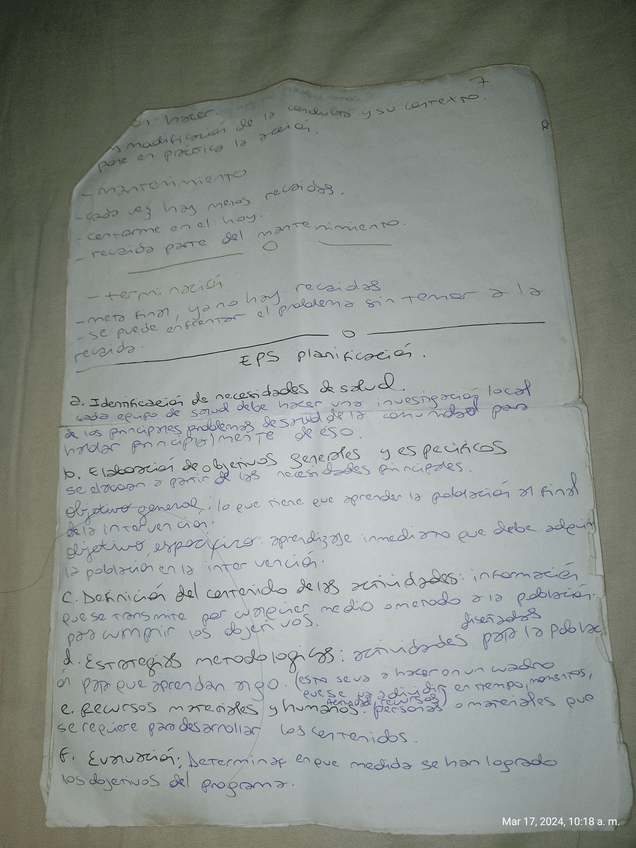 7
hacer.
modificación de la conducta y su contexto.
pone en práctica la acción.
- mantenimiento
- cada vez hay menos recaidas.
- centrarme en el hoy.
- recaida parte del mantenimiento.
- terminación
- meta final, ya no hay recaidas
- se puede enfrentar el problema sin temor a la
recaida.
EPS planificación.
a. Identificación de necesidades de salud.
cada equipo de salud debe hacer una investigación local
de los principales problemas de salud de la comunidad para
hablar principalmente de eso.
b. Elaboración de objetivos generales y especificos
se elaboran a partir de las necesidades principales.
objetivo general: lo que tiene que aprender la población al final
de la intervención.
objetivo especifico: aprendizaje inmediato que debe adquirir
la población en la intervención.
c. Definición del contenido de las actividades: información
que se transmite por cualquier medio o metodo a la población.
para cumplir los objetivos.
diseñadas
d. Estrategias metodologicas: actividades para la poblac
on para que aprendan algo. (esto se va a hacer en un cuadro
que se va a dividir en tiempo, monitores,
recursos)
e. Recursos materiales y humanos: personas o materiales que
se requiere para desarrollar los contenidos.
f. Evaluación: Determinar en que medida se han logrado
los objetivos del programa.
Mar 17, 2024, 10:18 a. m.